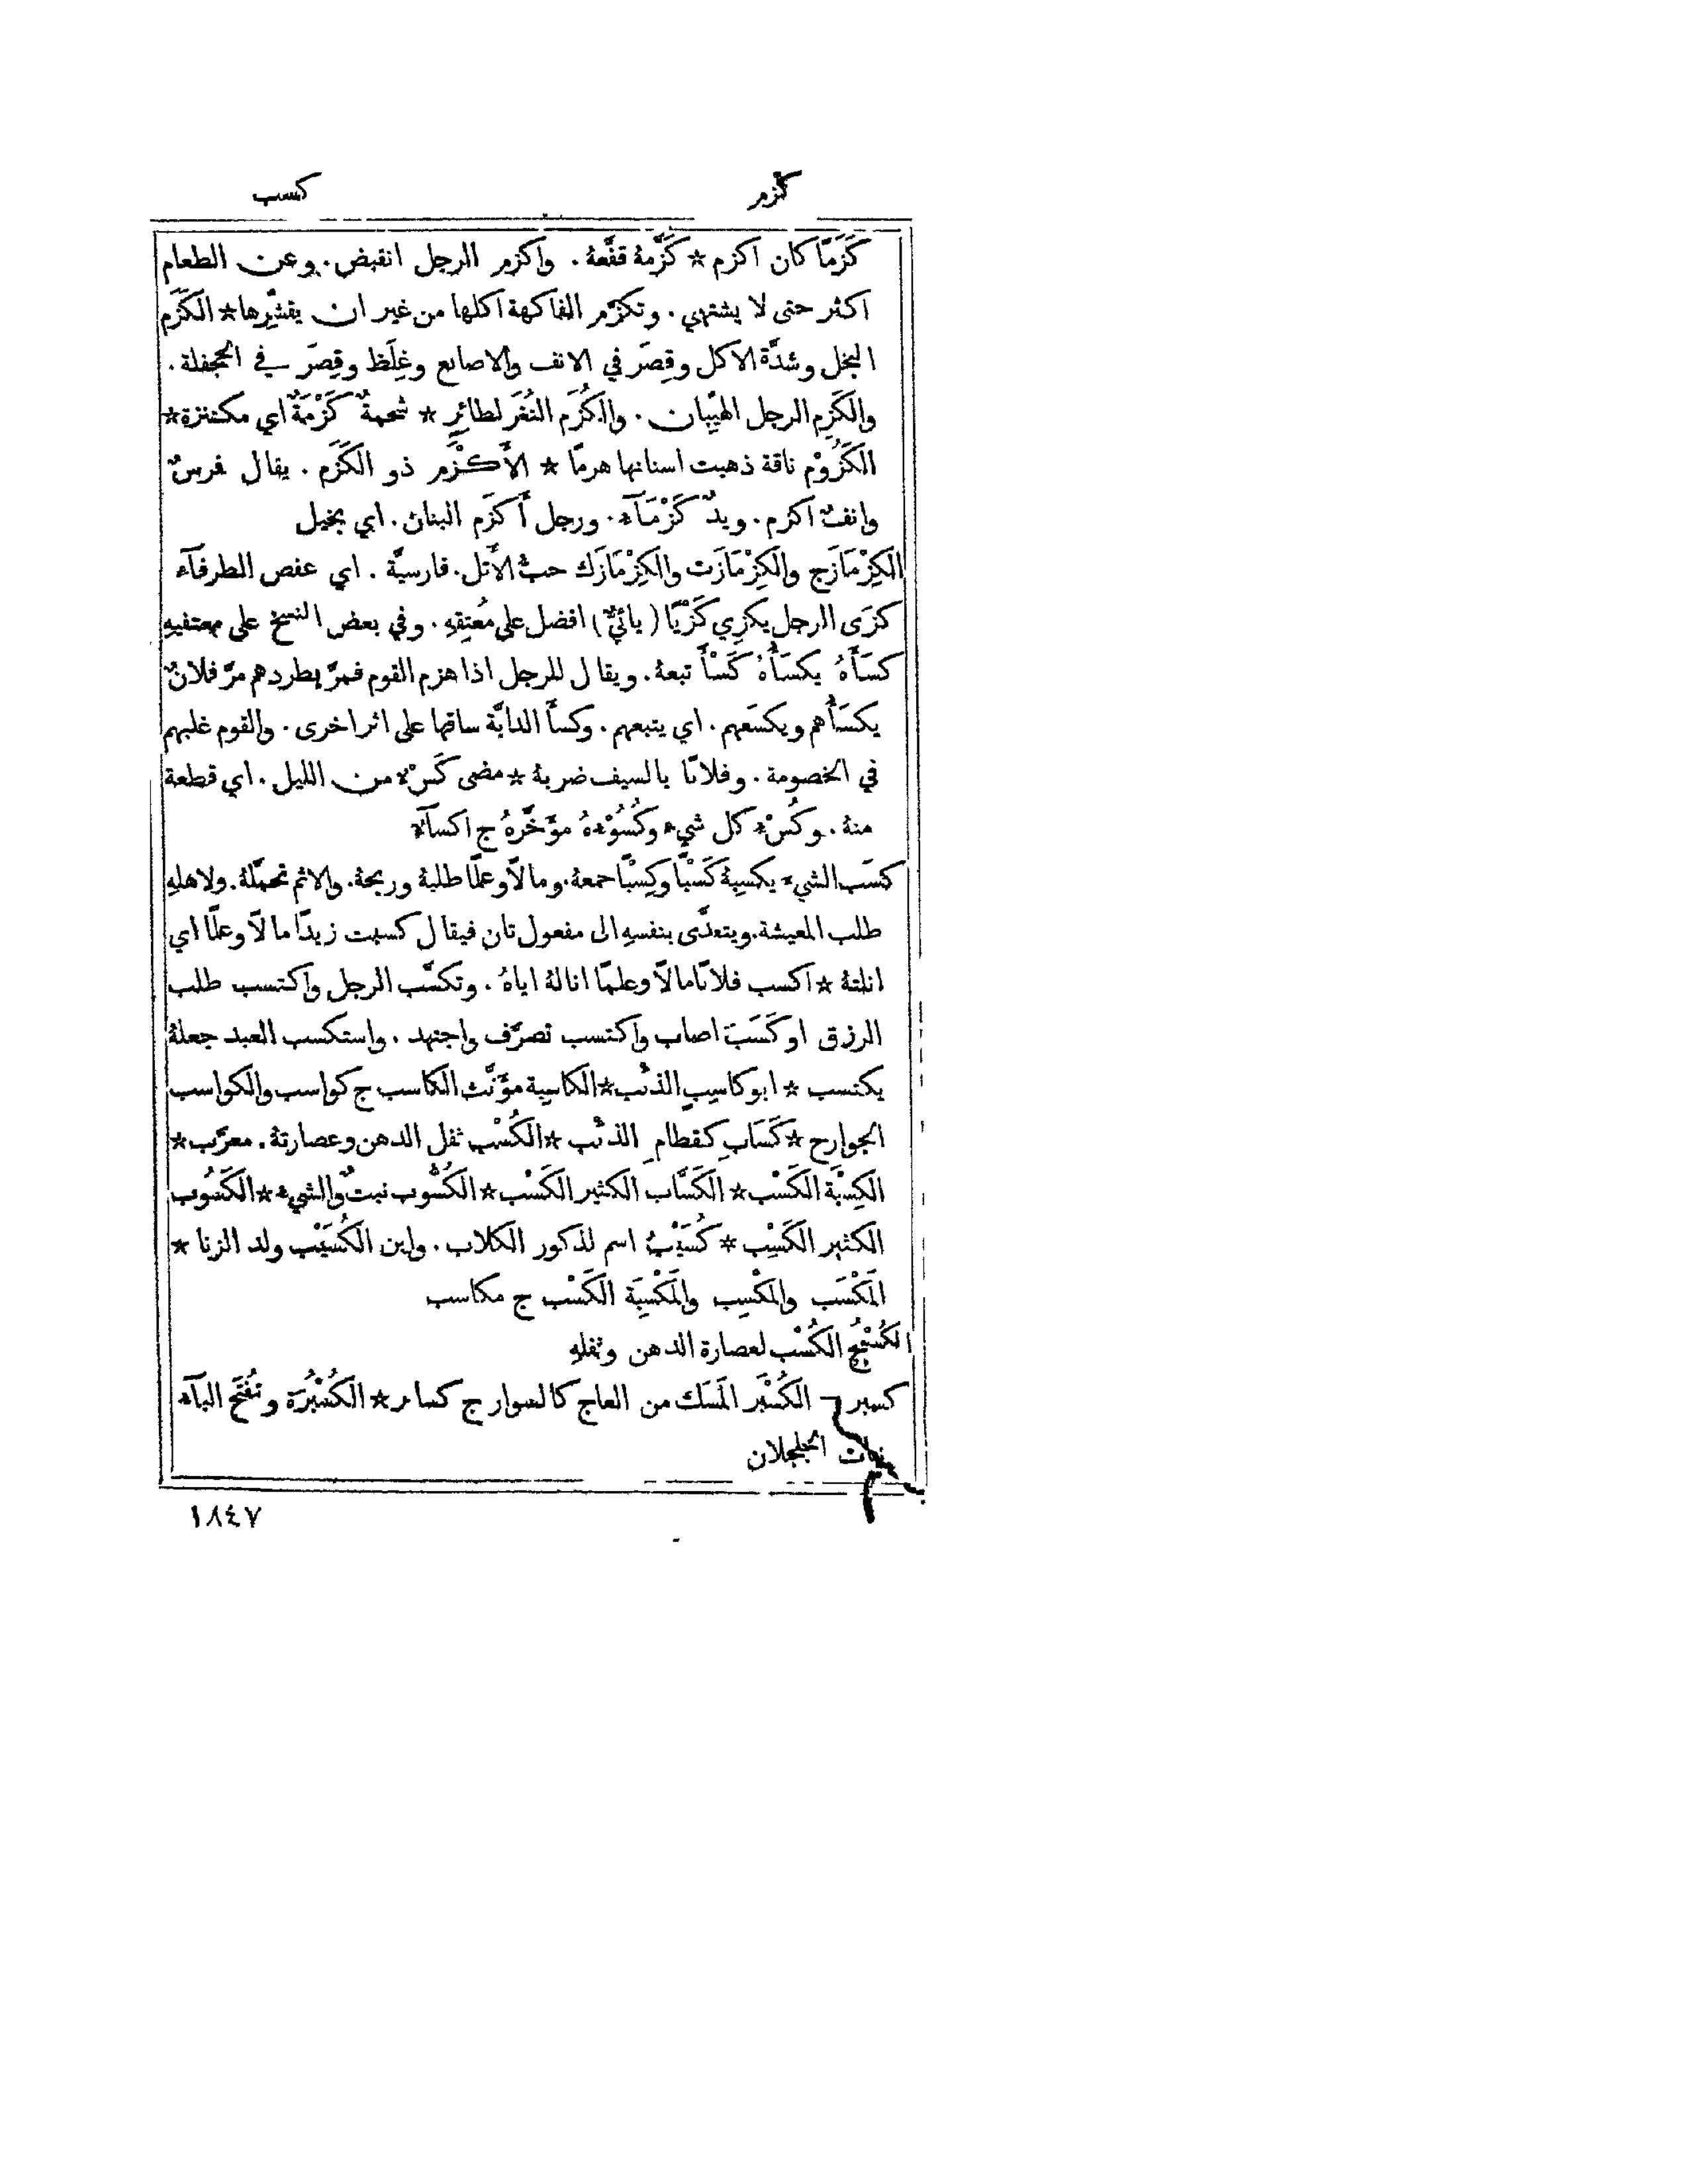 كزم
كسب
كَزَمًا كان اكزم * كَزَّمهُ قفَّعهُ . واكزم الرجل انقبض . وعن الطعام
اكثر حتى لا يشتهي . وتكزَّم الفاكهة اكلها من غير ان يقشِّرها * الكَزَم
البخل وشدَّة الاكل وقِصَر في الانف والاصابع وغِلَظ وقِصَر في الجحفلة .
والكَزِم الرجل الهيِّبان . والكُزَم النُغَر لطائرٍ * شحمةٌ كَزْمَةٌ اي مكتنزة *
الكَزُوْم ناقة ذهبت اسنانها هرمًا * الأَكْزَم ذو الكَزَم . يقال فرسٌ
وانفٌ اكزم . ويدٌ كَزْمَآء . ورجل أَكزَم البنان . اي بخيل
الكِزْمَازَج والكِزْمَازَت والكِزْمَازَك حبُّ الأَثل . فارسيَّة . اي عفص الطرفآء
كزَى الرجل يكزِي كَزْيًا ( يائيٌّ ) افضل على مُعتِقِهِ . وفي بعض النسخ على معتفيهِ
كسَأَهُ يكسَأُهُ كَسْأً تبعهُ . ويقال للرجل اذا هزم القوم فمرَّ يطردهم مرَّ فلانٌ
يكسَأُهم ويكسَعهم . اي يتبعهم . وكسأَ الدابَّة ساقها على اثر اخرى . والقوم غلبهم
في الخصومة . وفلانًا بالسيف ضربهُ * مضى كَسْءٌ من الليل . اي قطعة
منهُ . وكُسْءُ كل شيءٍ وكُسُوْءهُ مؤَخَّرهُ ج اكسآء
كسَب الشيء يكسِبهُ كَسْبًا وكِسْبًا جمعهُ . ومالًا وعلمًا طلبهُ وربحهُ . والاثم تحمَّلهُ . ولاهلهِ
طلب المعيشة . ويتعدَّى بنفسهِ الى مفعول ثانٍ فيقال كسبت زيدًا مالًا وعلمًا اي
انلتهُ * اكسب فلانًا مالًا وعلمًا انالهُ اياهُ . وتكسَّب الرجل واكتسب طلب
الرزق او كَسَبَ اصاب واكتسب تصرَّف واجتهد . واستكسب العبد جعلهُ
يكتسب * ابو كاسِبٍ الذئب * الكاسبة مؤَنَّث الكاسب ج كواسب والكواسب
الجوارح * كَسَابِ كقطامِ الذئب * الكُسْب ثفل الدهن وعصارتهُ . معرَّب *
الكِسْبَة الكَسْب * الكَسَّاب الكثير الكَسْب * الكُسُّوب نبتٌ والشيء * الكَسُوب
الكثير الكَسْب * كُسَيْبٌ اسم لذكور الكلاب . وابن الكُسَيْب ولد الزنا *
المَكْسَب والمَكْسِب والمَكْسِبَة الكَسْب ج مكاسب
الكُسْبُج الكُسْب لعصارة الدهن وثفلهِ
كسبر الكُسْبُر المَسَك من العاج كالسوار ج كسابر * الكُسْبُرَة وتُفْتَح البآء
نبات الجلجلان
١٨٤٧